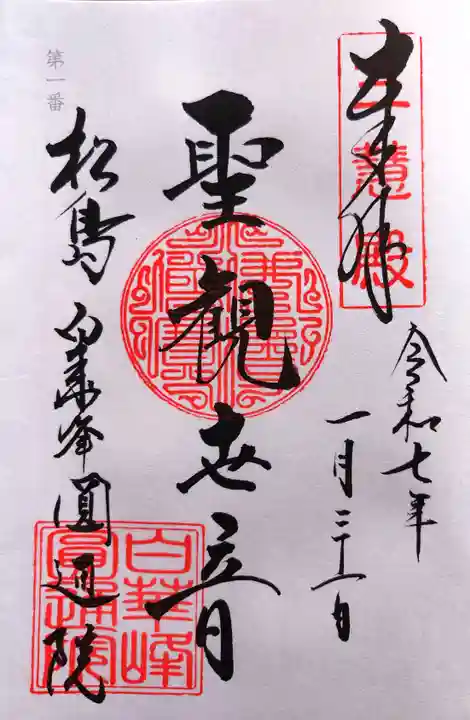 奉拝
三慧殿
令和七年
一月三十一日
聖観世音
第一番
松島 白華峰圓通院
白華峰
圓通院